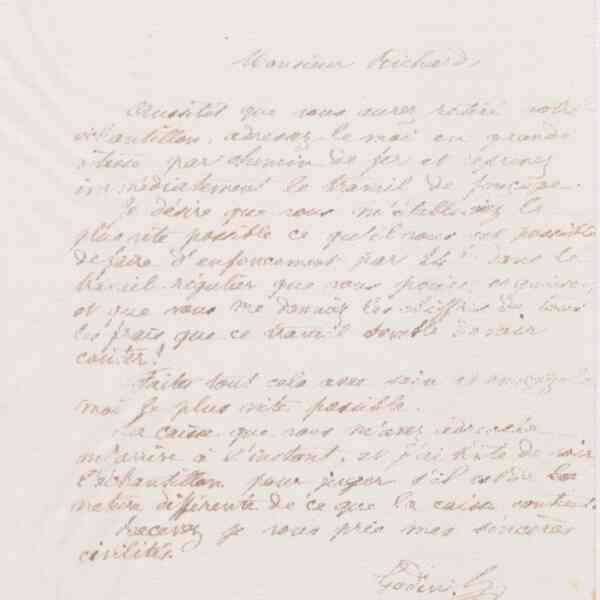 Monsieur Richard,
Aussitôt que vous aurez retiré votre
échantillon, adressez le moi en grande
vitesse par chemin de fer et
immédiatement le travail de
Je désire que vous m'établissiez le
plus vite possible ce qu'il vous est possible
de faire d'enfoncement par 24 h dans le
travail régulier que vous
et que vous me donniez les chiffres de tous
les frais que ce travail semble devoir
coûter.
Faites tout cela avec soin et envoyez le
moi le plus vite possible.
La caisse que vous m'avez adressée
m'arrive à l'instant, et j'ai hâte de voir
l'échantillon pour juger s'il est de
nature différente de ce que la caisse contient.
Recevez je vous prie mes sincères
civilités.
Godin